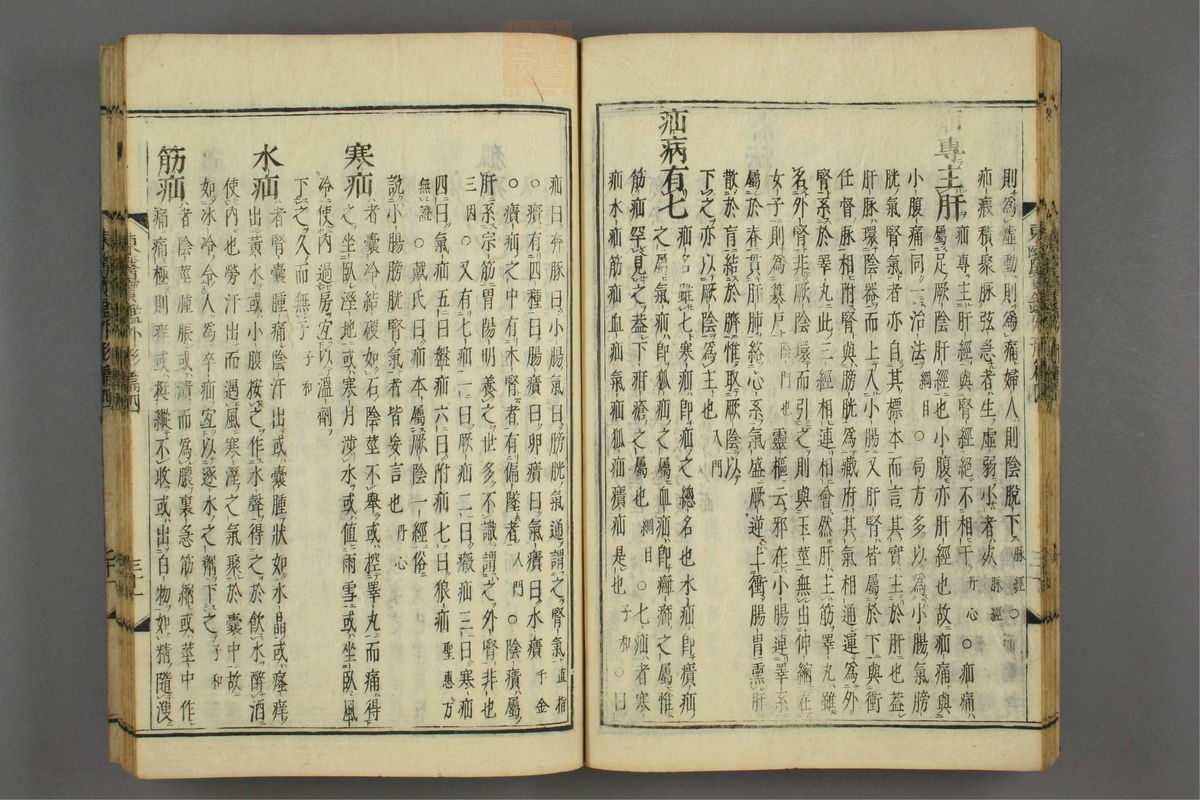 則爲虛動則爲痛婦人則陰脫下脉經○
疝瘕積聚脉弦急者生虛弱小者死脉經
專主肝
疝專主肝經與腎經絕不相干丹心○疝痛
屬足厥陰肝經也小腹亦肝經也故疝痛與
小腹痛同一治法綱目○局方多以爲小腸氣膀
胱氣腎氣者亦自其標本而言其實主於肝也盖
肝脉環陰器而上入小腸又肝腎皆屬於下與衝
任督脉相附腎與膀胱爲藏府其氣相通運爲外
腎系於睪丸此三經相連相會然肝主筋睪丸雖
名外腎非厥陰環而引之則與玉莖無由伸縮在
女子則爲纂戶陰門也靈樞云邪在小腸連睪系
屬於脊貫肝肺絡心系氣盛厥逆上衝腸胃熏肝
散於肓結於臍惟取厥陰以
下之亦以厥陰爲主也入門
疝病有七
疝名雖七寒疝即疝之總名也水疝即㿗疝
之屬氣疝即狐疝之屬血疝即癉癤之屬惟
筋疝罕見之盖下疳瘡之屬也綱目○七疝者寒
疝水疝筋疝血疝氣疝狐疝㿗疝是也子和○曰
疝曰奔豚曰小腸氣曰膀胱氣通謂之腎氣直指
○㿗有四種曰腸㿗曰卵㿗曰氣㿗曰水㿗千金
○㿗疝之中有木腎者有偏墜者入門○陰㿗屬
肝系宗筋胃陽明養之世多不識謂之外腎非也
三因○又有七疝一曰厥疝二曰癥疝三曰寒疝
四曰氣疝五曰盤疝六曰附疝七曰狼疝聖惠方
無證○戴氏曰疝本屬厥陰一經俗
說小腸膀胱腎氣者皆妄言也丹心
寒疝
者囊冷結硬如石陰莖不舉或控睪丸而痛得
之坐臥溼地或寒月涉水或値雨雪或坐臥風
冷使內過房宜以溫劑
下之久而無子子和
水疝
者腎囊腫痛陰汗出或囊腫狀如水晶或瘙痒
出黃水或小腹按之作水聲得之於飮水醉酒
使內也勞汗出而遇風寒溼之氣聚於囊中故
如冰冷令人爲卒疝宜以逐水之劑下之子和
筋疝
者陰莖腫脹或潰而爲膿裏急筋縮或莖中作
痛痛極則痒或挺縱不收或出白物如精隨溲